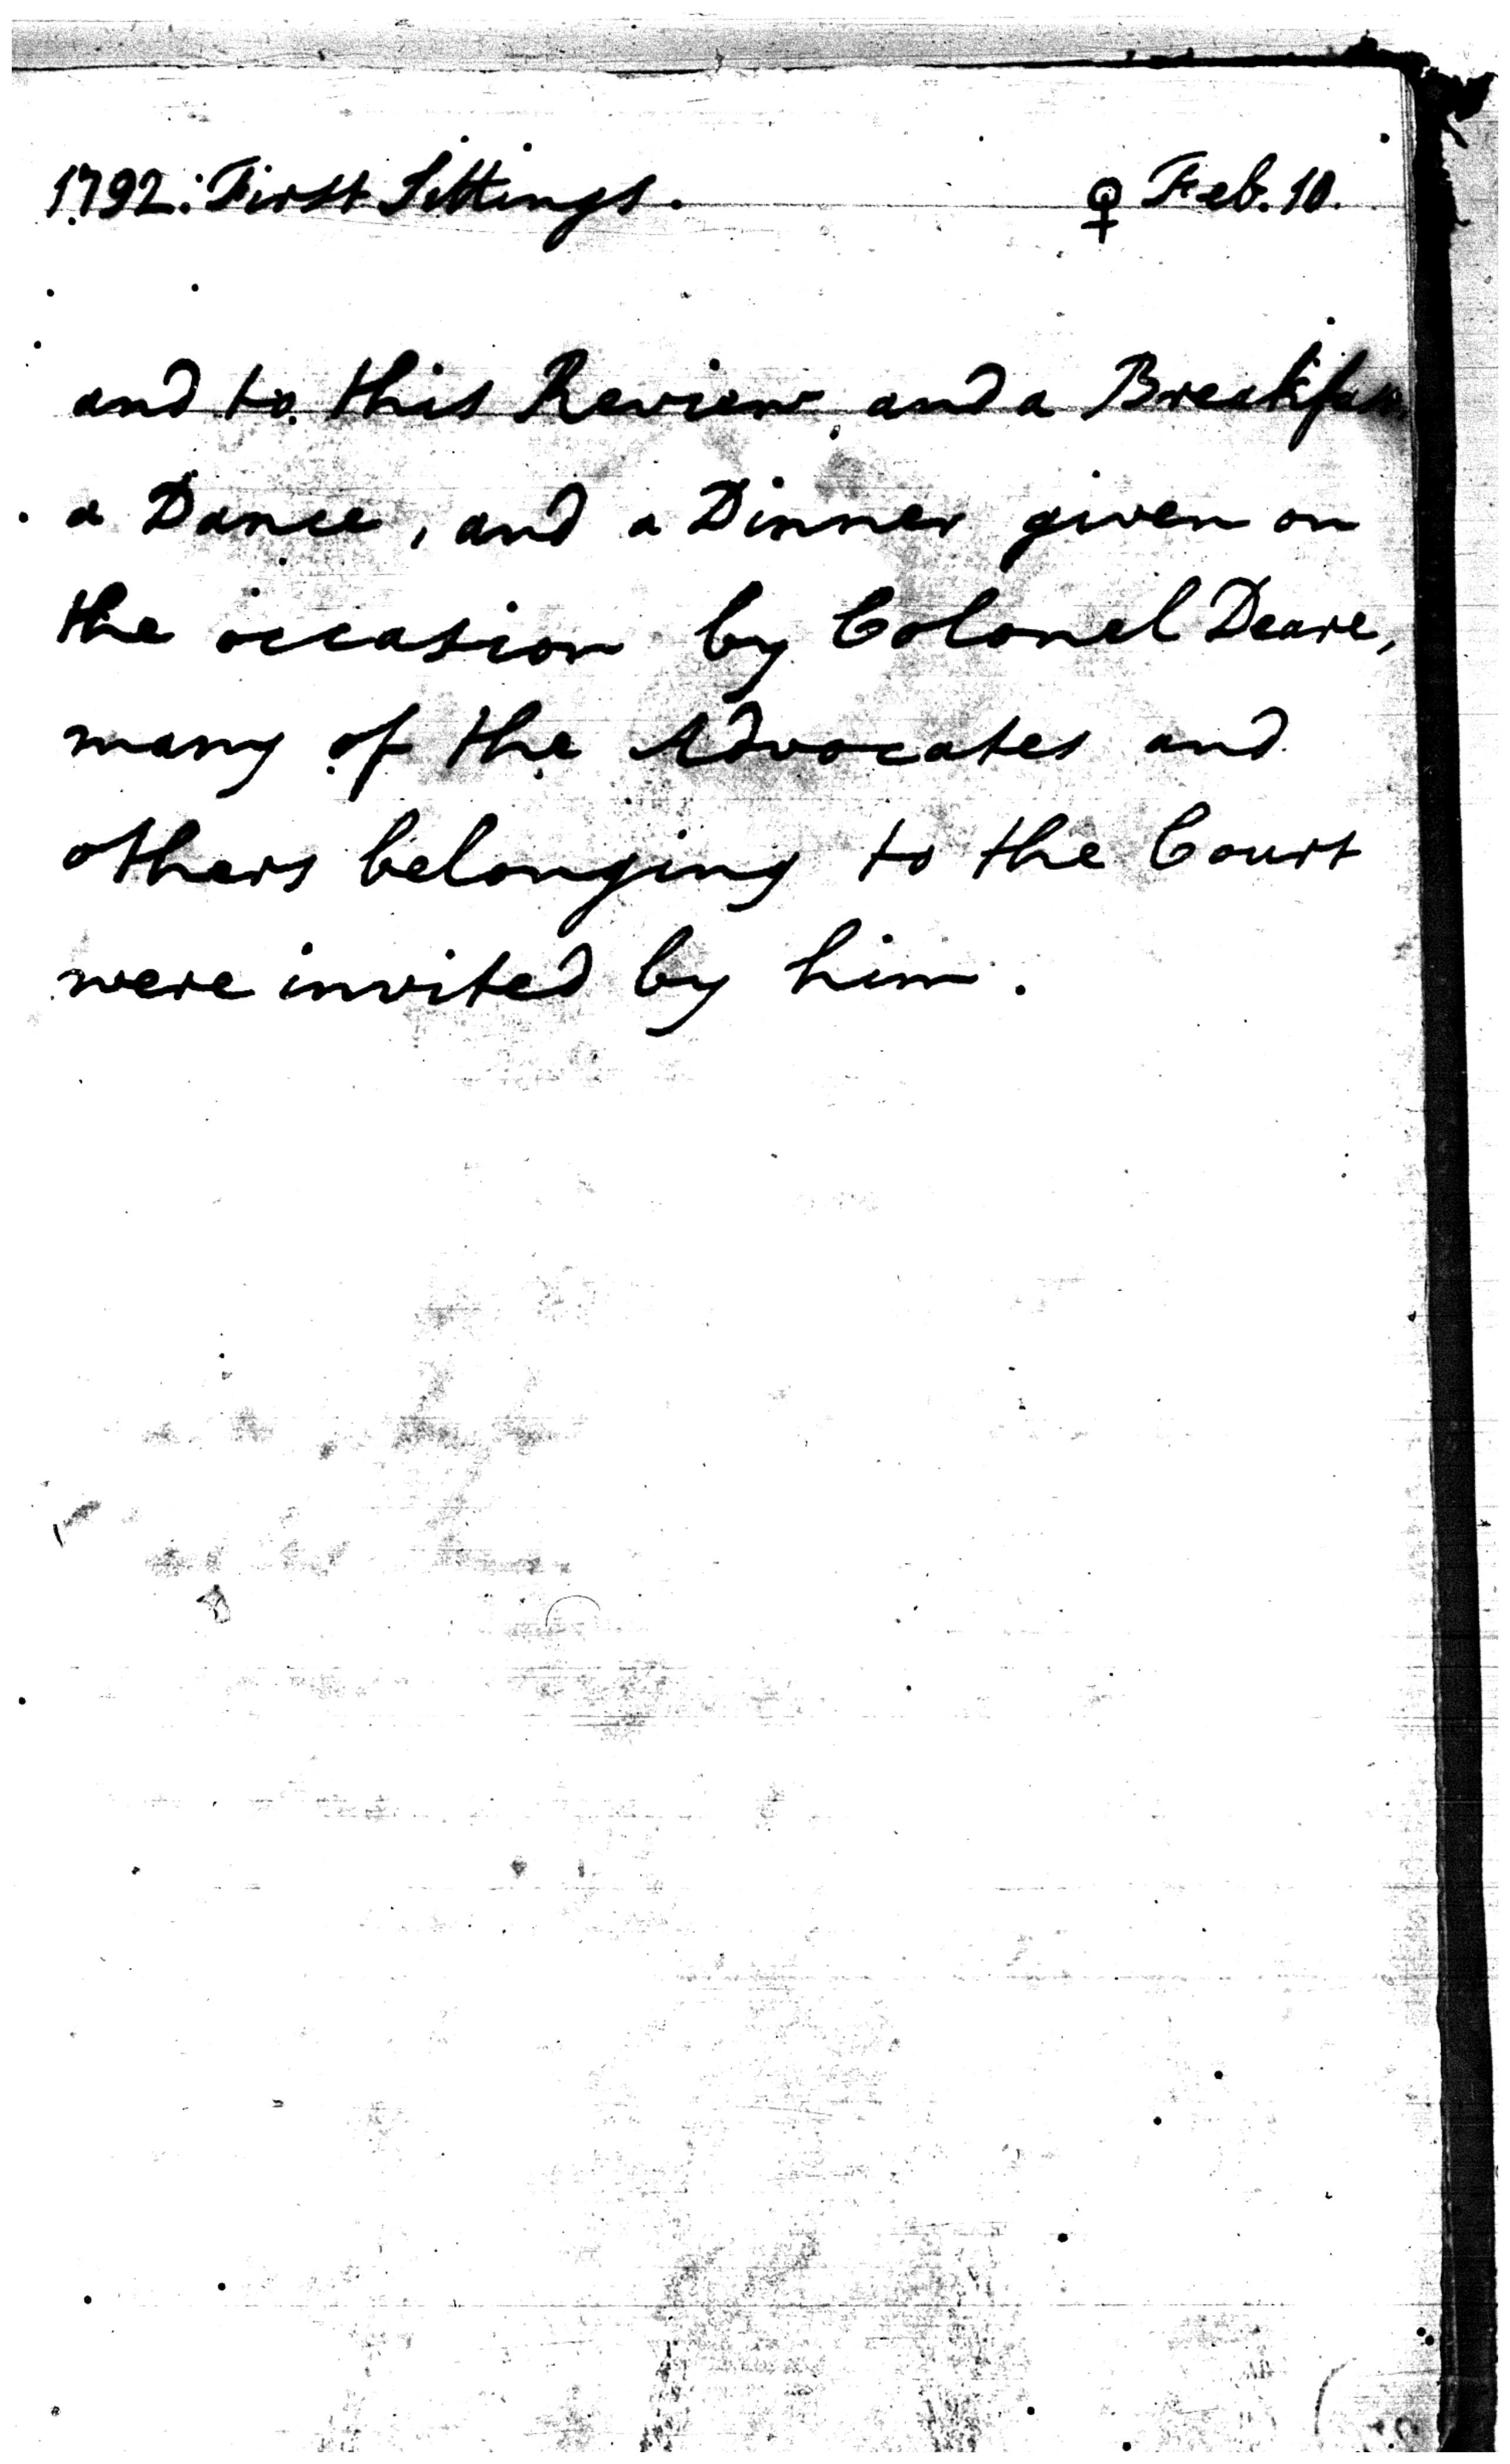 1792: First Sittings. ♀ Feb. 10.
and to this Review and a Breakfas
a Dance, and a Dinner given on
the occasion by Colonel Deare,
many of the Advocates and
others belonging to the Court
were invited by him.